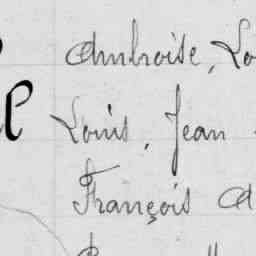 Ambroise, Lo
Louis, Jean
François A